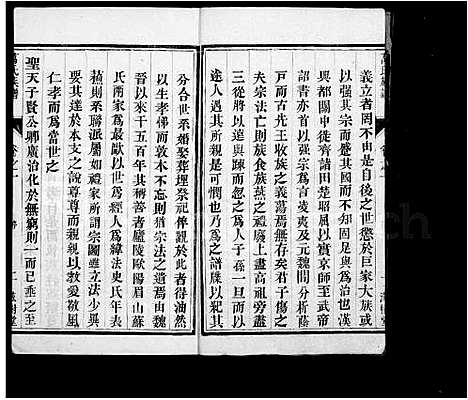 義立者罔不由是自後之世懲於巨家大族或
以強其宗而蹙其國而不知固足與為治也漢
興都關中徙齊諸田楚昭屈以實京師至武帝
詔書亦首以強宗為言凌夷及元魏間分析蔭
戸而古先王收族之義蕩焉無存矣君子傷之
夫宗法亡則族食族燕之禮廢上盡高祖旁盡
三從將以遠與疎而忽之為人子孫一旦而以
途人遇其所親是可憫也乃為之譜牒以犯其
分合世系婚娶葬埋祭祀俾觀於此者得油然
以生孝佛而敦本不忘則猶宗法之遺焉由魏
晉以來千五百年其稱善者廬陵歐陽眉山蘇
氏兩家為最歐以世經人為緯法史氏年表
蘇則系聯派屬如禮家所謂宗圖雖立法少異
要其達於本支之說尊尊而親親以教愛敬風
仁孝而為當世之
聖天子賢公卿廣治化於無窮則一而已垂之至